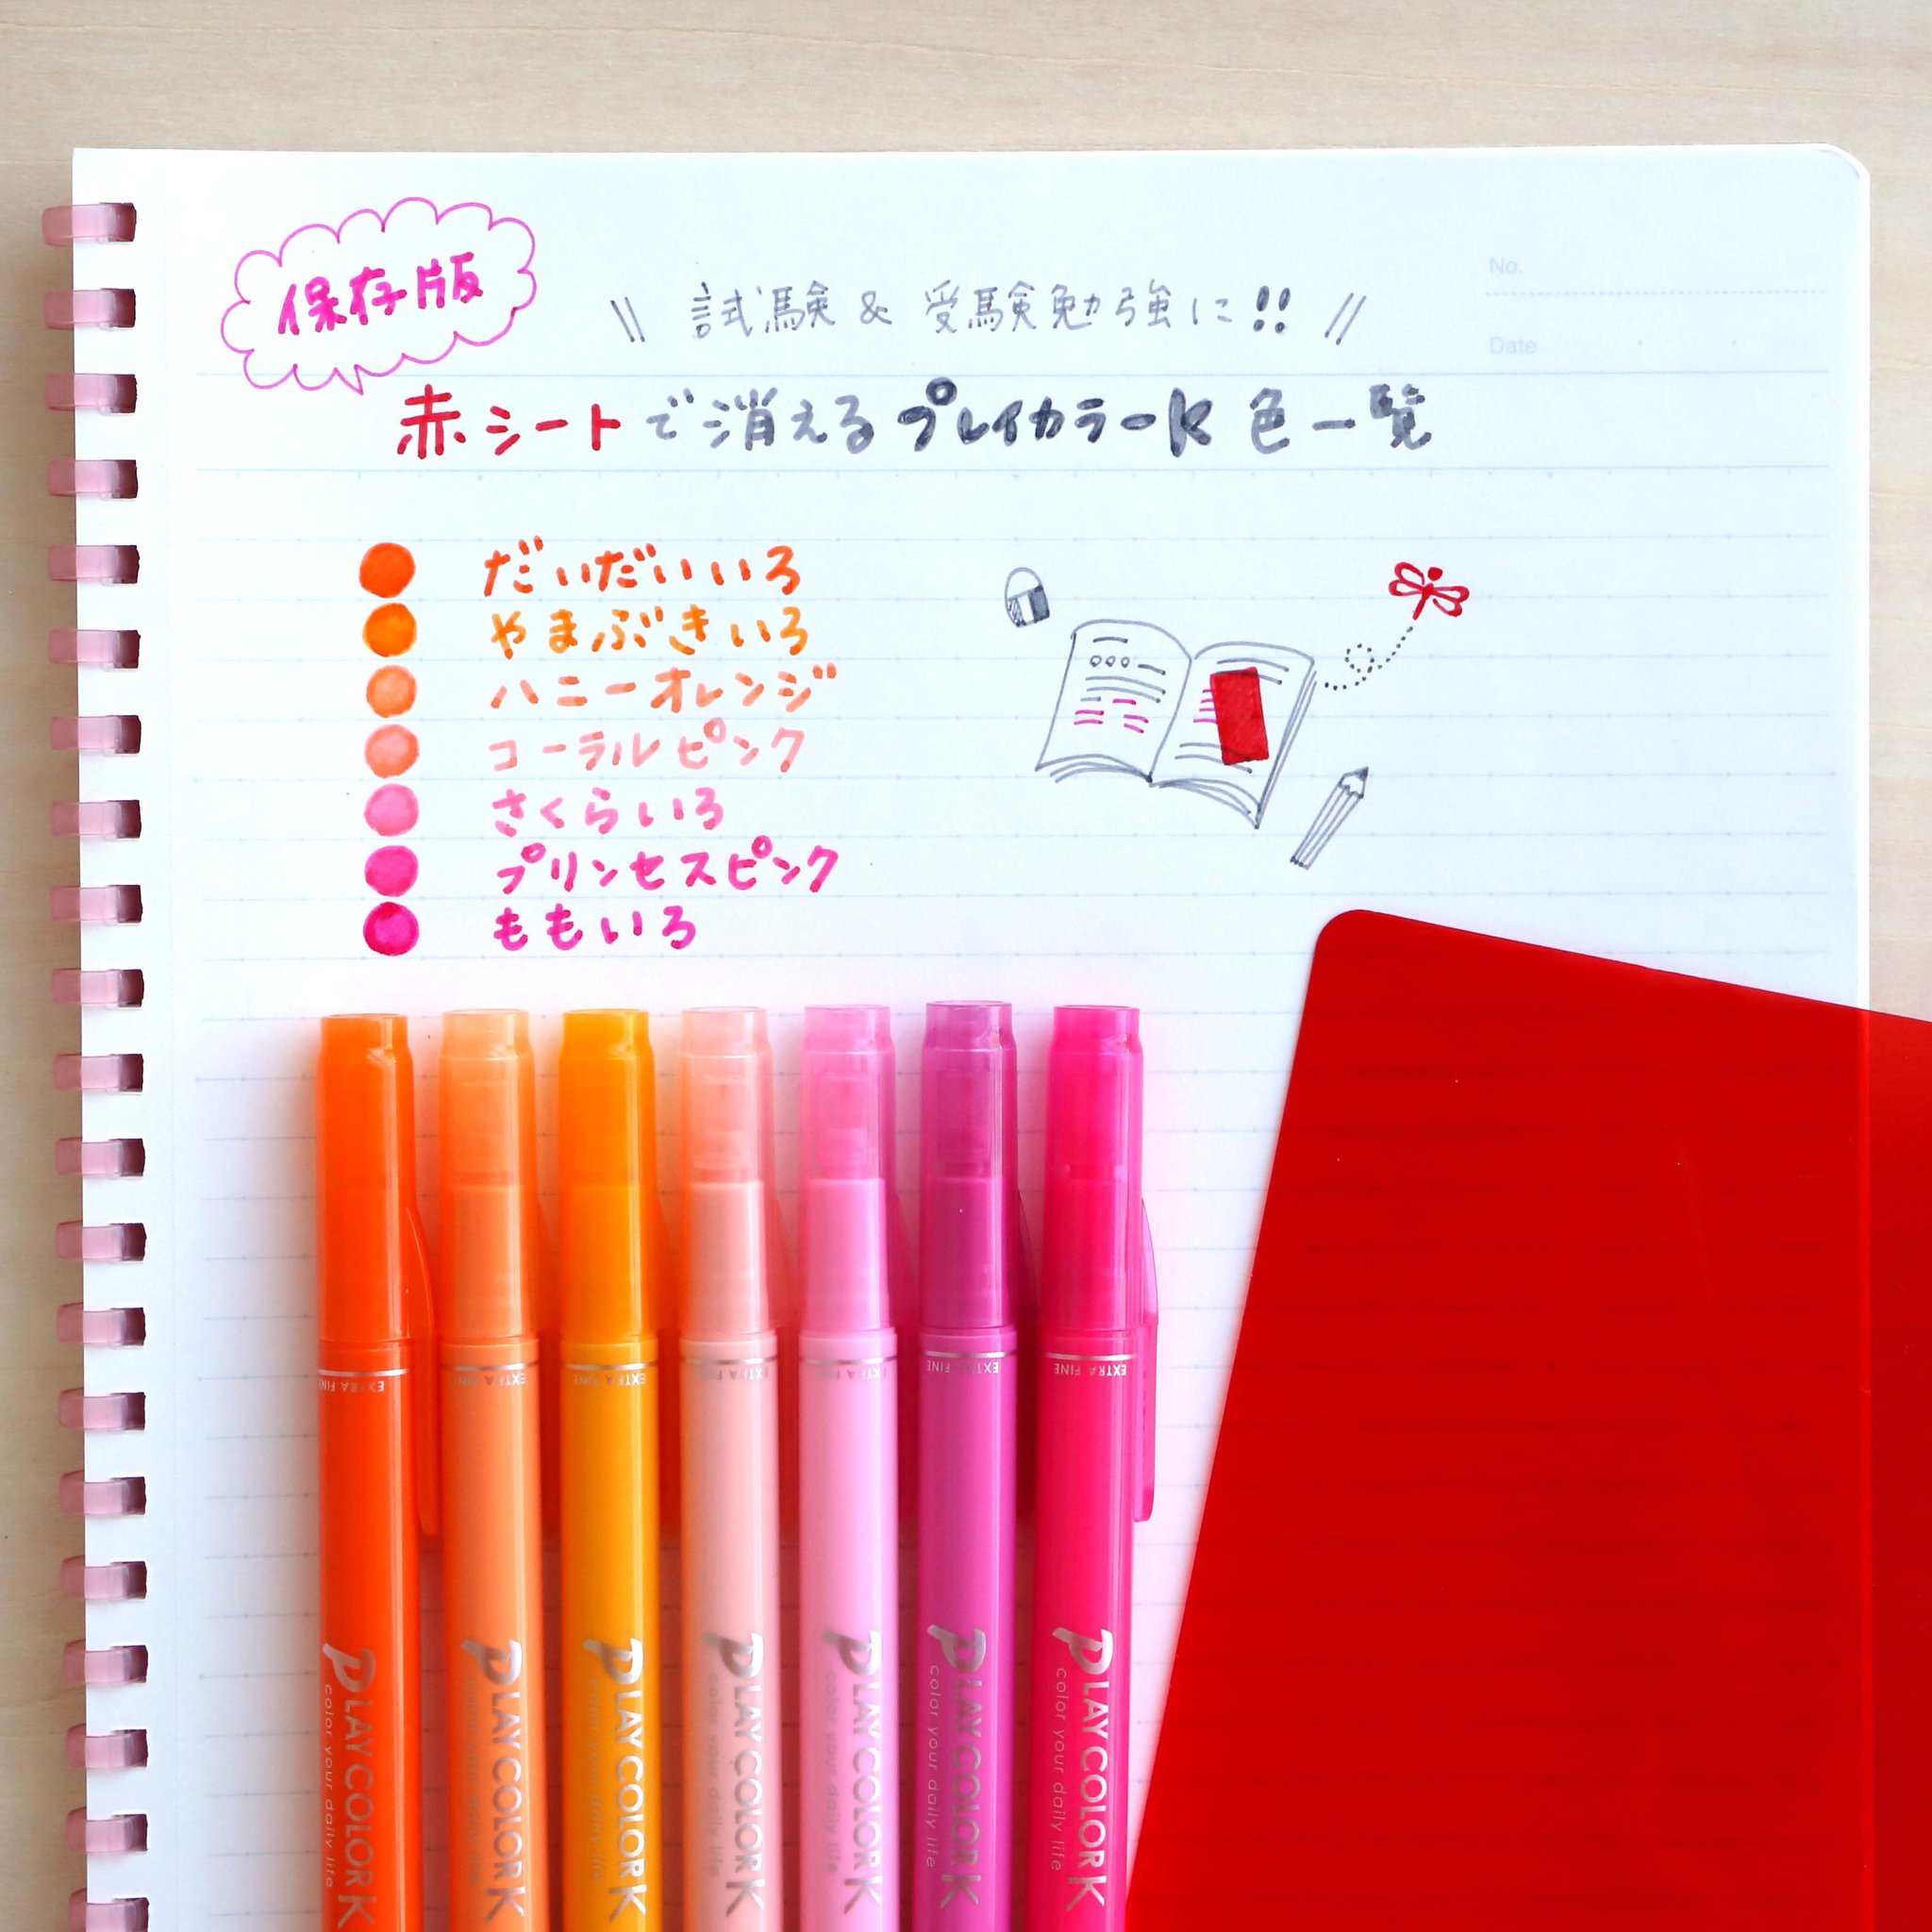 保存版
試験 & 受験勉強に!!
No.
Date
赤シートで消えるプレイカラーK 色一覧
だいだいいろ
やまぶきいろ
ハニーオレンジ
コーラルピンク
さくらいろ
プリンセスピンク
ももいろ
EXTRA FINE
EXTRA FINE
EXTRA FINE
EXTRA FINE
EXTRA FINE
EXTRA FINE
EXTRA FINE
PLAY COLOR K
color your daily life
PLAY COLOR K
color your daily life
PLAY COLOR K
color your daily life
PLAY COLOR K
color your daily life
PLAY COLOR K
color your daily life
PLAY COLOR K
color your daily life
PLAY COLOR K
color your daily life